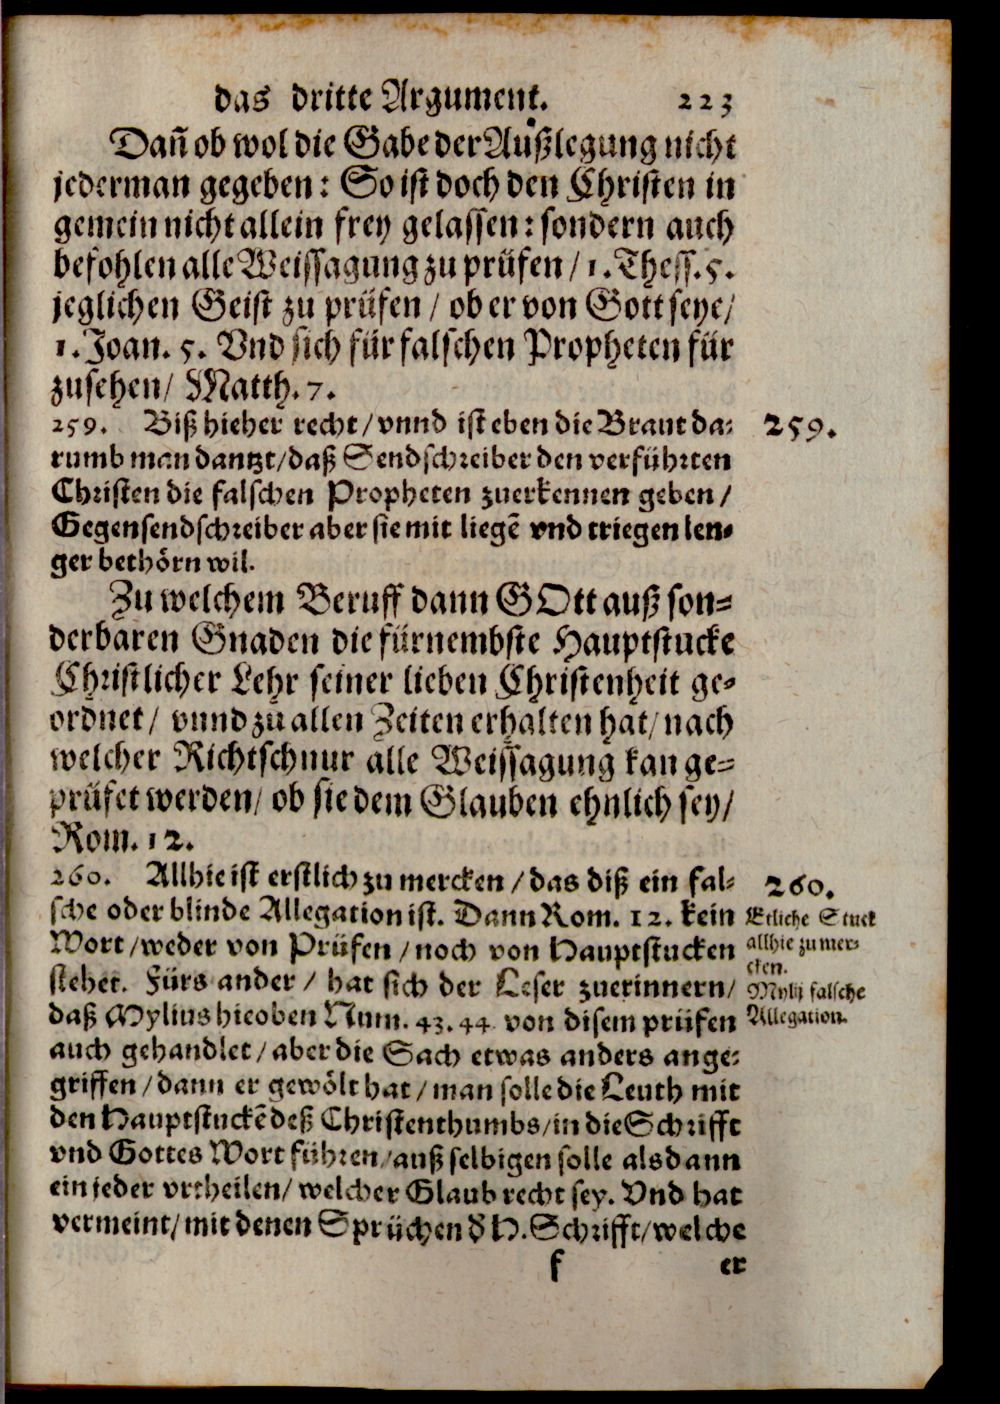 das dritte Argument. 223
Dañ ob wol die Gabe der Außlegung nicht
jederman gegeben: So ist doch den Christen in
gemein nicht allein frey gelassen: sondern auch
befohlen alle Weissagung zu prüfen / 1. Thess. 5.
jeglichen Geist zu prüfen / ob er von Gott seye/
1. Joan. 5. Vnd sich für falschen Propheten für
zusehen/ Matth. 7.
259. Biß hieher recht / vnnd ist eben die Braut da-
rumb man dantzt/daß Sendschreiber den verführten
Christen die falschen Propheten zuerkennen geben /
Gegensendschreiber aber sie mit liegẽ vnd triegen len-
ger bethörn wil.
259.
Zu welchem Beruff dann GOtt auß son-
derbaren Gnaden die fürnembste Hauptstucke
Christlicher Lehr seiner lieben Christenheit ge-
ordnet / vnnd zu allen Zeiten erhalten hat/ nach
welcher Richtschnur alle Weissagung kan ge-
prüfet werden/ ob sie dem Glauben ehnlich sey/
Rom. 12.
260. Allhie ist erstlich zu mercken / das diß ein fal-
sche oder blinde Allegation ist. Dann Rom. 12. kein
Wort / weder von Prüfen / noch von Hauptstucken
stehet. Fürs ander / hat sich der Leser zuerinnern/
daß Mylius hieoben Num. 43. 44 von disem prüfen
auch gehandlet / aber die Sach etwas anders ange-
griffen / dann er gewölt hat / man solle die Leuth mit
den Hauptstuckẽ deß Christenthumbs/in die Schrifft
vnd Gottes Wort führen/auß selbigen solle alsdann
ein jeder vrtheilen/ welcher Glaub recht sey. Vnd hat
vermeint/mit denen Sprüchen ð H. Schrifft/welche
260.
Etliche Stuck
allhie zu mer-
cken.
Mylij falsche
Allegation.
f er